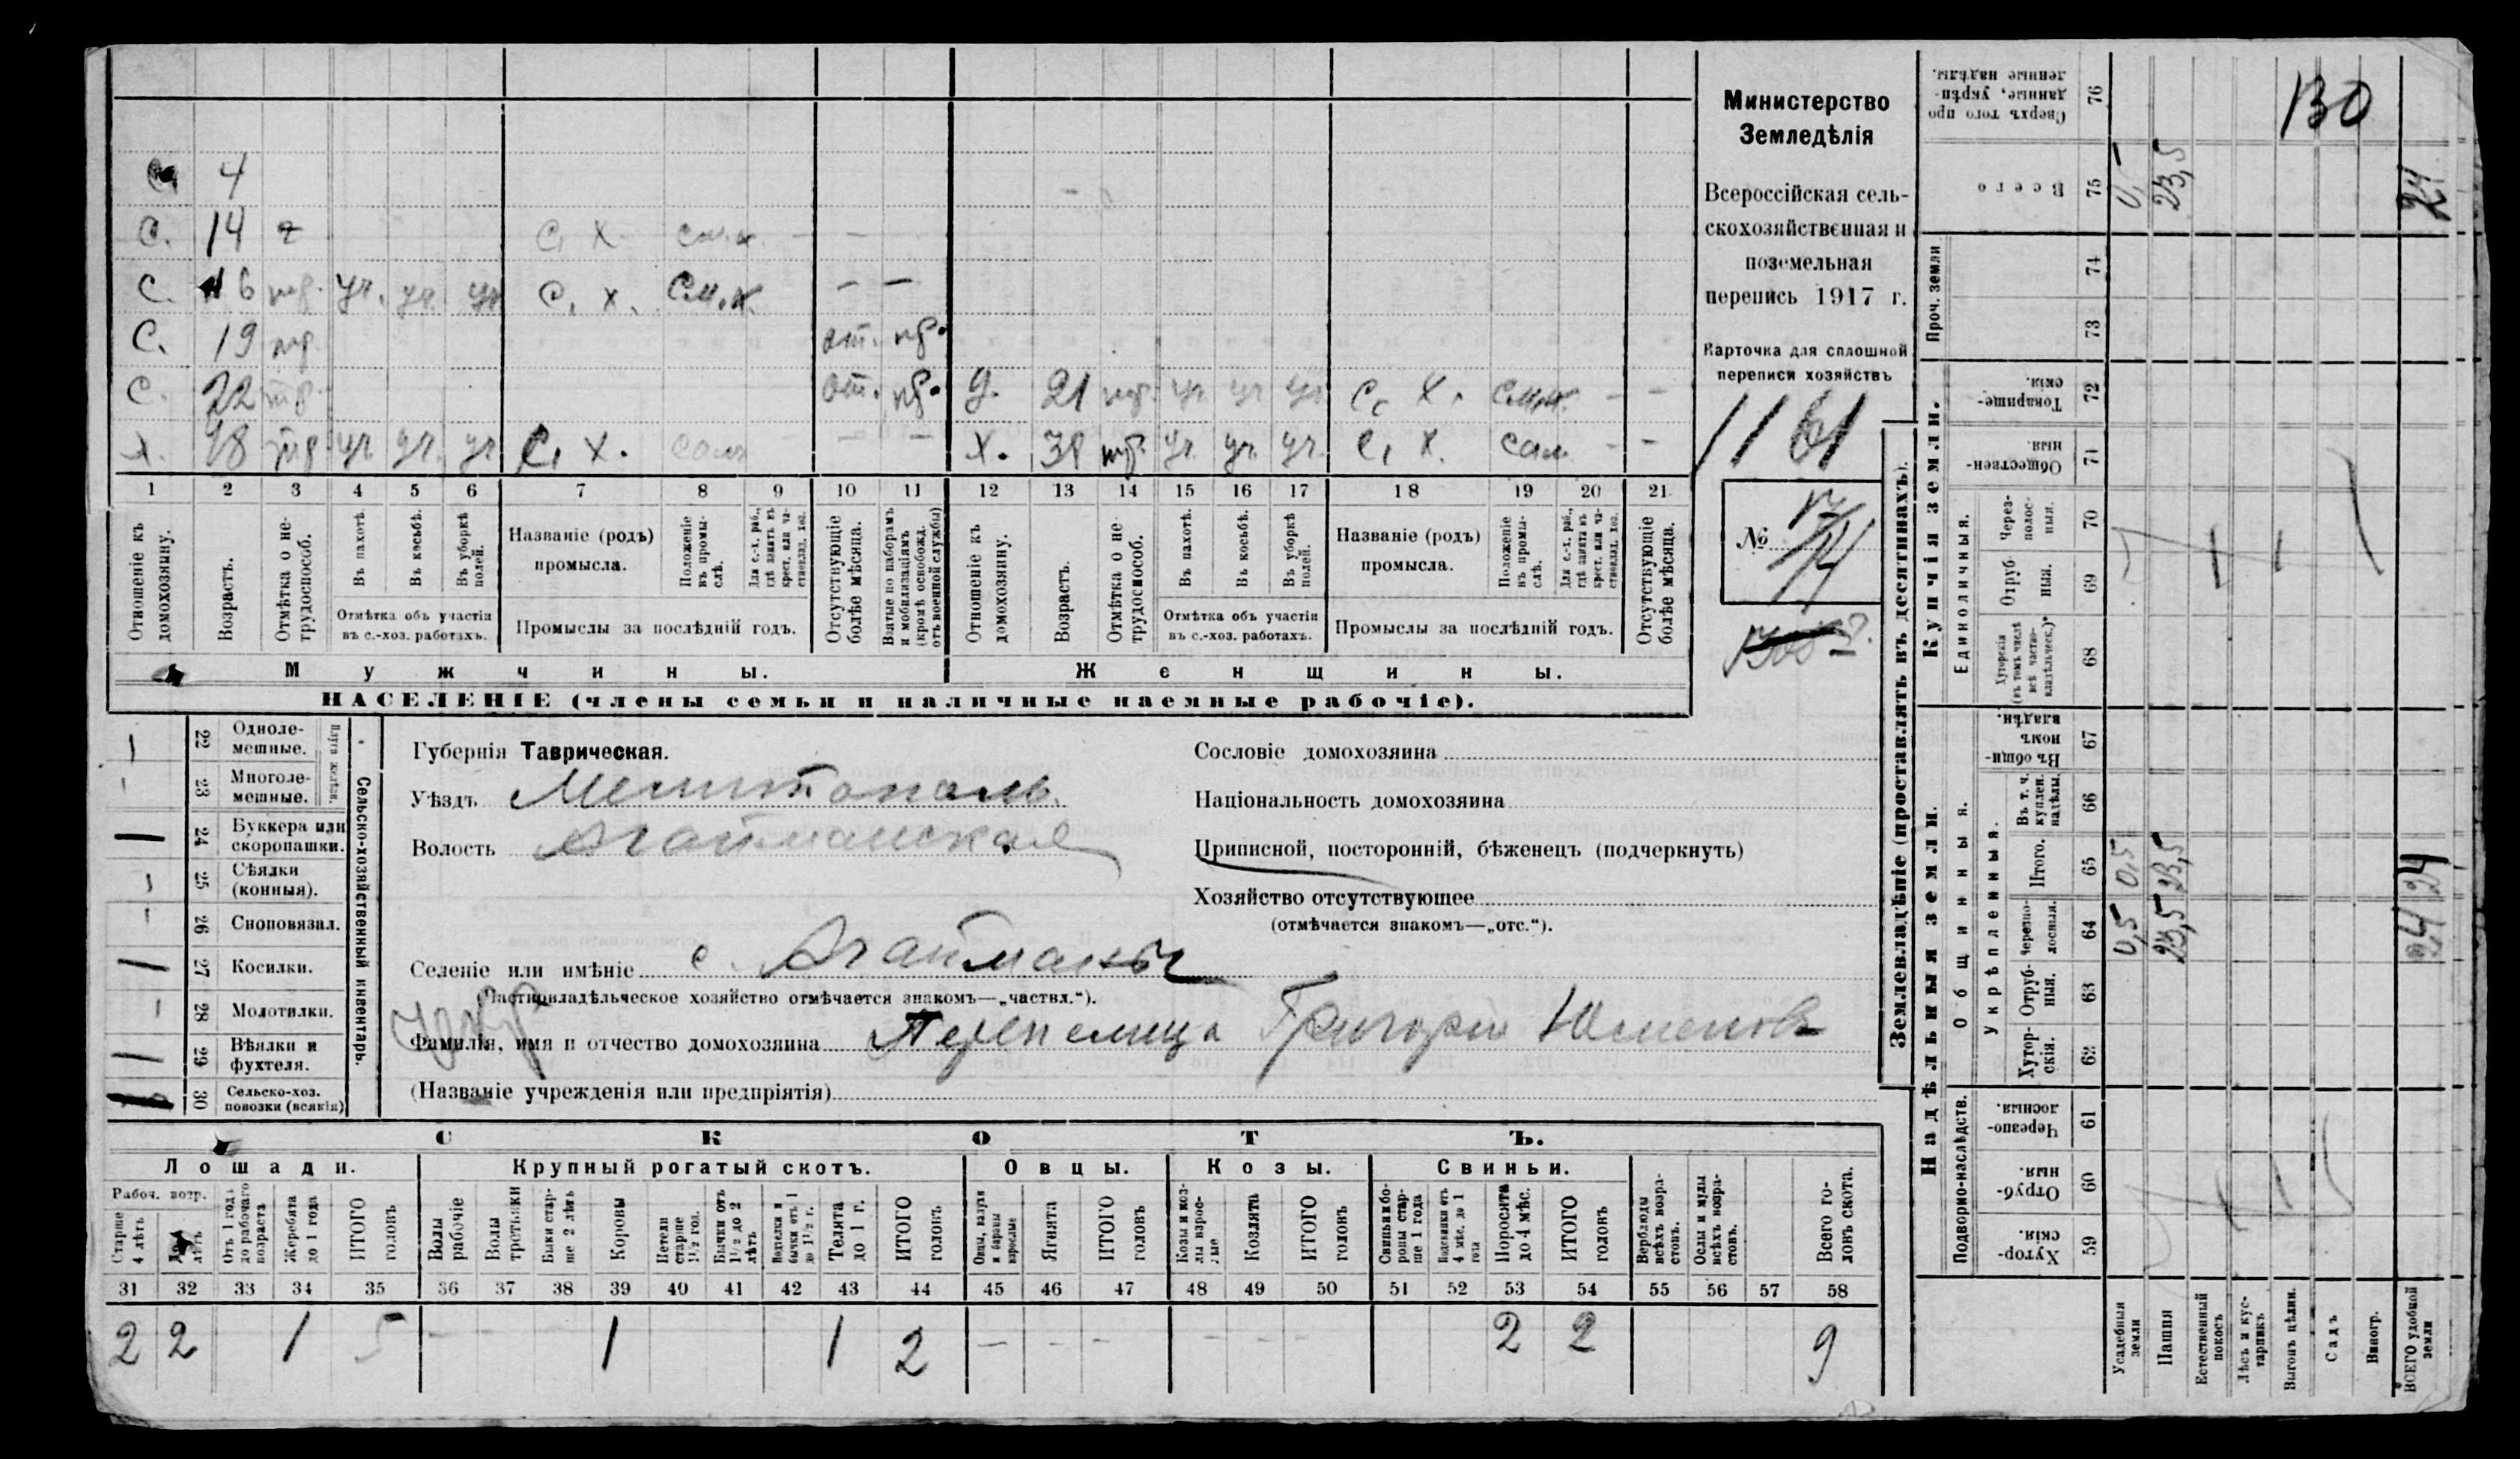 С. 4
С. 14 С. Х. см.х. — —
С. 16 тр. уч. уч. уч С. Х. см.х. — —
С. 19 тр. от. пр.
С. 22 тр. от. пр. Д. 21 тр. уч уч уч С. Х. см.х. — —
Х. 48 тр. уч. уч. уч С. Х. сам — — Х. 38 тр. уч. уч. уч. С. Х. сам. — —
1 2 3 4 5 6 7 8 9 10 11 12 13 14 15 16 17 18 19 20 21
Отношеніе къ домохозяину.
Возрастъ.
Отмѣтка о не-трудоспособ.
Въ пахотѣ.
Въ косьбѣ.
Въ уборкѣ полей.
Отмѣтка объ участіи
въ с.-хоз. работахъ.
Названіе (родъ)
промысла.
Положеніе въ промы-слѣ.
Для с.-х. раб., гдѣ занятъ въ крест. или ча-стновлад. хоз.
Промыслы за послѣдній годъ.
Отсутствующіе болѣе мѣсяца.
Взятые по наборамъ и мобилизаціямъ (кромѣ освобожд. отъ военной службы)
Отношеніе къ домохозяину.
Возрастъ.
Отмѣтка о не трудоспособ.
Въ пахотѣ.
Въ косьбѣ.
Въ уборкѣ полей.
Отмѣтка объ участіи
въ с.-хоз. работахъ.
Названіе (родъ)
промысла.
Положеніе въ промы-слѣ.
Для с.-х. раб., гдѣ занята въ крест. или ча-стновлад. хоз.
Промыслы за послѣдній годъ.
Отсутствующіе болѣе мѣсяца.
Мужчины.
Женщины.
НАСЕЛЕНІЕ (члены семьи и наличные наемные рабочіе).
Министерство
Земледѣлія
Всероссійская сель-
скохозяйственная и
поземельная
перепись 1917 г.
Карточка для сплошной
переписи хозяйствъ
1161
№
22 Одноле-мешные.
23 Многоле-мешные.
Плуги желѣзн.
24 Буккера или скоропашки.
25 Сѣялки (конныя).
26 Сноповязал.
27 Косилки.
28 Молотилки.
29 Вѣялки и фухтеля.
30 Сельско-хоз. повозки (всякія)
Сельско-хозяйственный инвентарь.
Губернія Таврическая.
Уѣздъ Мелитополь.
Волость Агайманская
Селеніе или имѣніе с. Агайманы
(Частновладѣльческое хозяйство отмѣчается знакомъ—„частвл.“).
укр
Фамилія, имя и отчество домохозяина Перепелица Григорій
(Названіе учрежденія или предпріятія)
Сословіе домохозяина
Національность домохозяина
Приписной, посторонній, бѣженецъ (подчеркнуть)
Хозяйство отсутствующее
(отмѣчается знакомъ—„отс.“).
СКОТЪ.
Лошади. Крупный рогатый скотъ. Овцы. Козы. Свиньи.
Рабоч. возр.
Старше 4 лѣтъ
До 4 лѣтъ
Отъ 1 года до рабочаго возраста
Жеребята до 1 года
ИТОГО головъ
Волы рабочіе
Волы третьяки
Быки стар-ше 2 лѣтъ
Коровы
Нетели старше 1½ год.
Бычки отъ 1½ до 2 лѣтъ
Водтелки и бычки отъ 1 до 1½ г.
Телята до 1 г.
ИТОГО головъ
Овцы, валухи и бараны взрослые
Ягнята
ИТОГО головъ
Козы и коз-лы взрос-лые
Козлята
ИТОГО головъ
Свиньи и бо-ровы стар-ше 1 года
Подсвинки отъ 4 мѣс. до 1 года
Поросята до 4 мѣс.
ИТОГО головъ
Верблюды всѣхъ возра-стовъ.
Ослы и мулы всѣхъ возра-стовъ.
Всего го-ловъ скота.
31 32 33 34 35 36 37 38 39 40 41 42 43 44 45 46 47 48 49 50 51 52 53 54 55 56 57 58
2 2 1 5 — 1 1 2 — — — — — — 2 2 9
Землевладѣніе (проставлять въ десятинахъ).
Надѣльныя земли.
Купчія земли.
Проч. земли
Подворно-наслѣдств.
Общинныя.
Укрѣпленныя.
Единоличныя.
59 Хутор-скія.
60 Отруб-ныя.
61 Черезпо-лосныя.
62 Хутор-скія.
63 Отруб-ныя.
64 Черезпо-лосныя.
65 Итого.
66 Въ т. ч. куплен. надѣлы.
67 Въ общи-номъ владѣн.
68 Хуторскія (въ томъ числѣ всѣ частно-владѣльческ.)*
69 Отруб-ныя.
70 Через-полос-ныя.
71 Обществен-ныя.
72 Товарище-скія.
73
74
75 Всего
76 Сверхъ того про-данные, укрѣп-ленные надѣлы.
Усадебныя земли 0,5 0,5 0,5
Пашня 23,5 23,5 23,5
Естественный покосъ
Лѣсъ и кус-тарникъ
Выгонъ цѣлин.
Садъ
Виногр.
ВСЕГО удобной земли 24 24 24
130